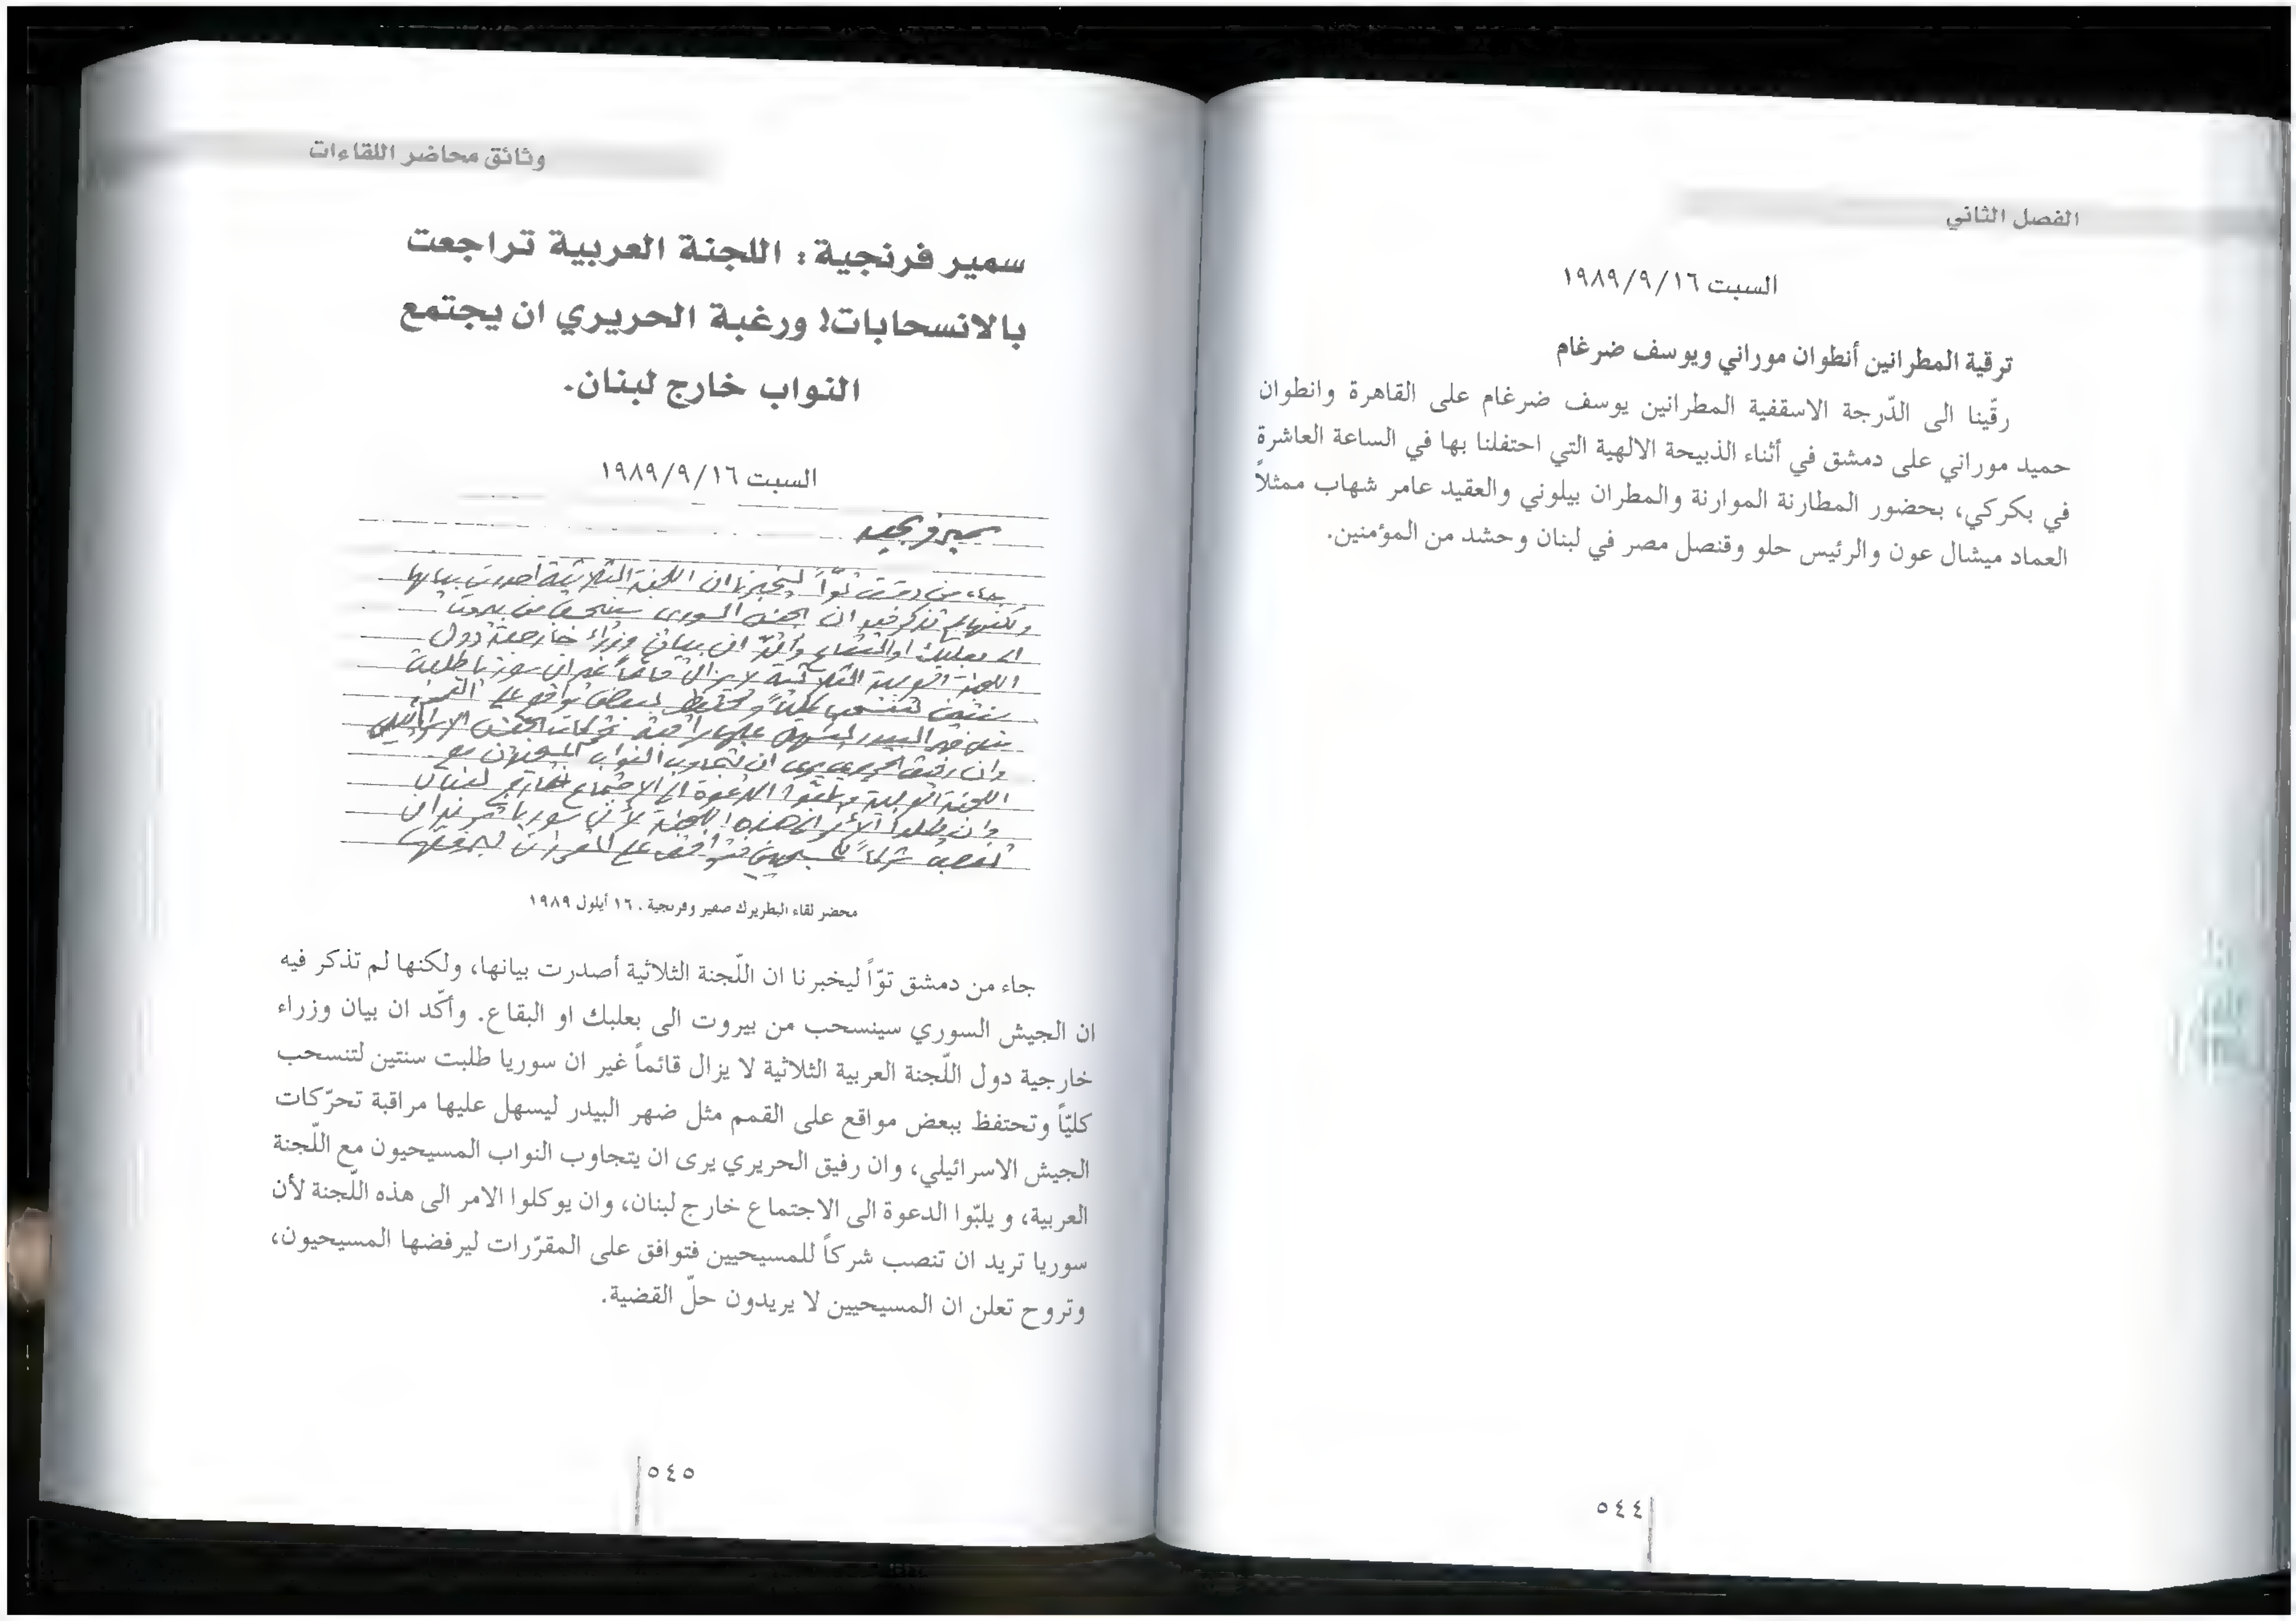 الفصل الثاني
السبت ١٩٨٩/٩/١٦
ترقية المطرانين أنطوان موراني ويوسف ضرغام
رقّينا الى الدّرجة الاسقفية المطرانين يوسف ضرغام على القاهرة وانطوان
حميد موراني على دمشق في أثناء الذبيحة الالهية التي احتفلنا بها في الساعة العاشرة
في بكركي، بحضور المطارنة الموارنة والمطران بيلوني والعقيد عامر شهاب ممثلاً
العماد ميشال عون والرئيس حلو وقنصل مصر في لبنان وحشد من المؤمنين.
٥٤٤
وثائق محاضر اللقاءات
سمير فرنجية: اللجنة العربية تراجعت
بالانسحابات! ورغبة الحريري ان يجتمع
النواب خارج لبنان.
السبت ١٩٨٩/٩/١٦
سمير فرنجيه
جاء من دمشق توّاً ليخبرنا ان اللجنة الثلاثية أصدرت بيانها
ولكنها لم تذكر فيه ان الجيش السوري سينسحب من بيروت
الى بعلبك او البقاع وأكّد ان بيان وزراء خارجية دول
اللجنة العربية الثلاثية لا يزال قائماً غير ان سوريا طلبت
سنتين لتنسحب كليّاً وتحتفظ ببعض مواقع على القمم
مثل ضهر البيدر ليسهل عليها مراقبة تحركات الجيش الاسرائيلي
وان رفيق الحريري يرى ان يتجاوب النواب المسيحيون مع
اللجنة العربية ويلبّوا الدعوة الى الاجتماع خارج لبنان
وان يوكلوا الأمر الى هذه اللجنة لأن سوريا تريد ان
تنصب شركاً للمسيحيين فتوافق على المقررات ليرفضها
محضر لقاء البطريرك صفير وفرنجية. ١٦ أيلول ١٩٨٩
جاء من دمشق توّاً ليخبرنا ان اللّجنة الثلاثية أصدرت بيانها، ولكنها لم تذكر فيه
ان الجيش السوري سينسحب من بيروت الى بعلبك او البقاع. وأكّد ان بيان وزراء
خارجية دول اللّجنة العربية الثلاثية لا يزال قائماً غير ان سوريا طلبت سنتين لتنسحب
كليّاً وتحتفظ ببعض مواقع على القمم مثل ضهر البيدر ليسهل عليها مراقبة تحرّكات
الجيش الاسرائيلي، وان رفيق الحريري يرى ان يتجاوب النواب المسيحيون مع اللّجنة
العربية، و يلبّوا الدعوة الى الاجتماع خارج لبنان، وان يوكلوا الامر الى هذه اللّجنة لأن
سوريا تريد ان تنصب شركاً للمسيحيين فتوافق على المقرّرات ليرفضها المسيحيون،
وتروح تعلن ان المسيحيين لا يريدون حلّ القضية.
٥٤٥